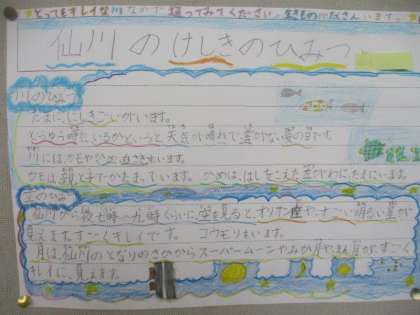 とってもキレイな川なので 通ってみてください。生きものがたくさんいます。
仙川のけしきのひみつ
川のひみつ
たまに、にしきごいがいます。
どうゆう時にいるかというと、天気が晴れで、雲がない夏の日です。
川には、カモやひな
かもは、親と子でかたまっています。かめは、はしをこえた
空のひみつ
仙川から夜七時～九時くらいに、空を見ると、オリオン座や、すごい明るい星が
見えます。すごくキレイです。コウモリもいます。
月は、仙川のとなりのさかからスーパームーンやみか月やまん月が、すごく
キレイに、見えます。